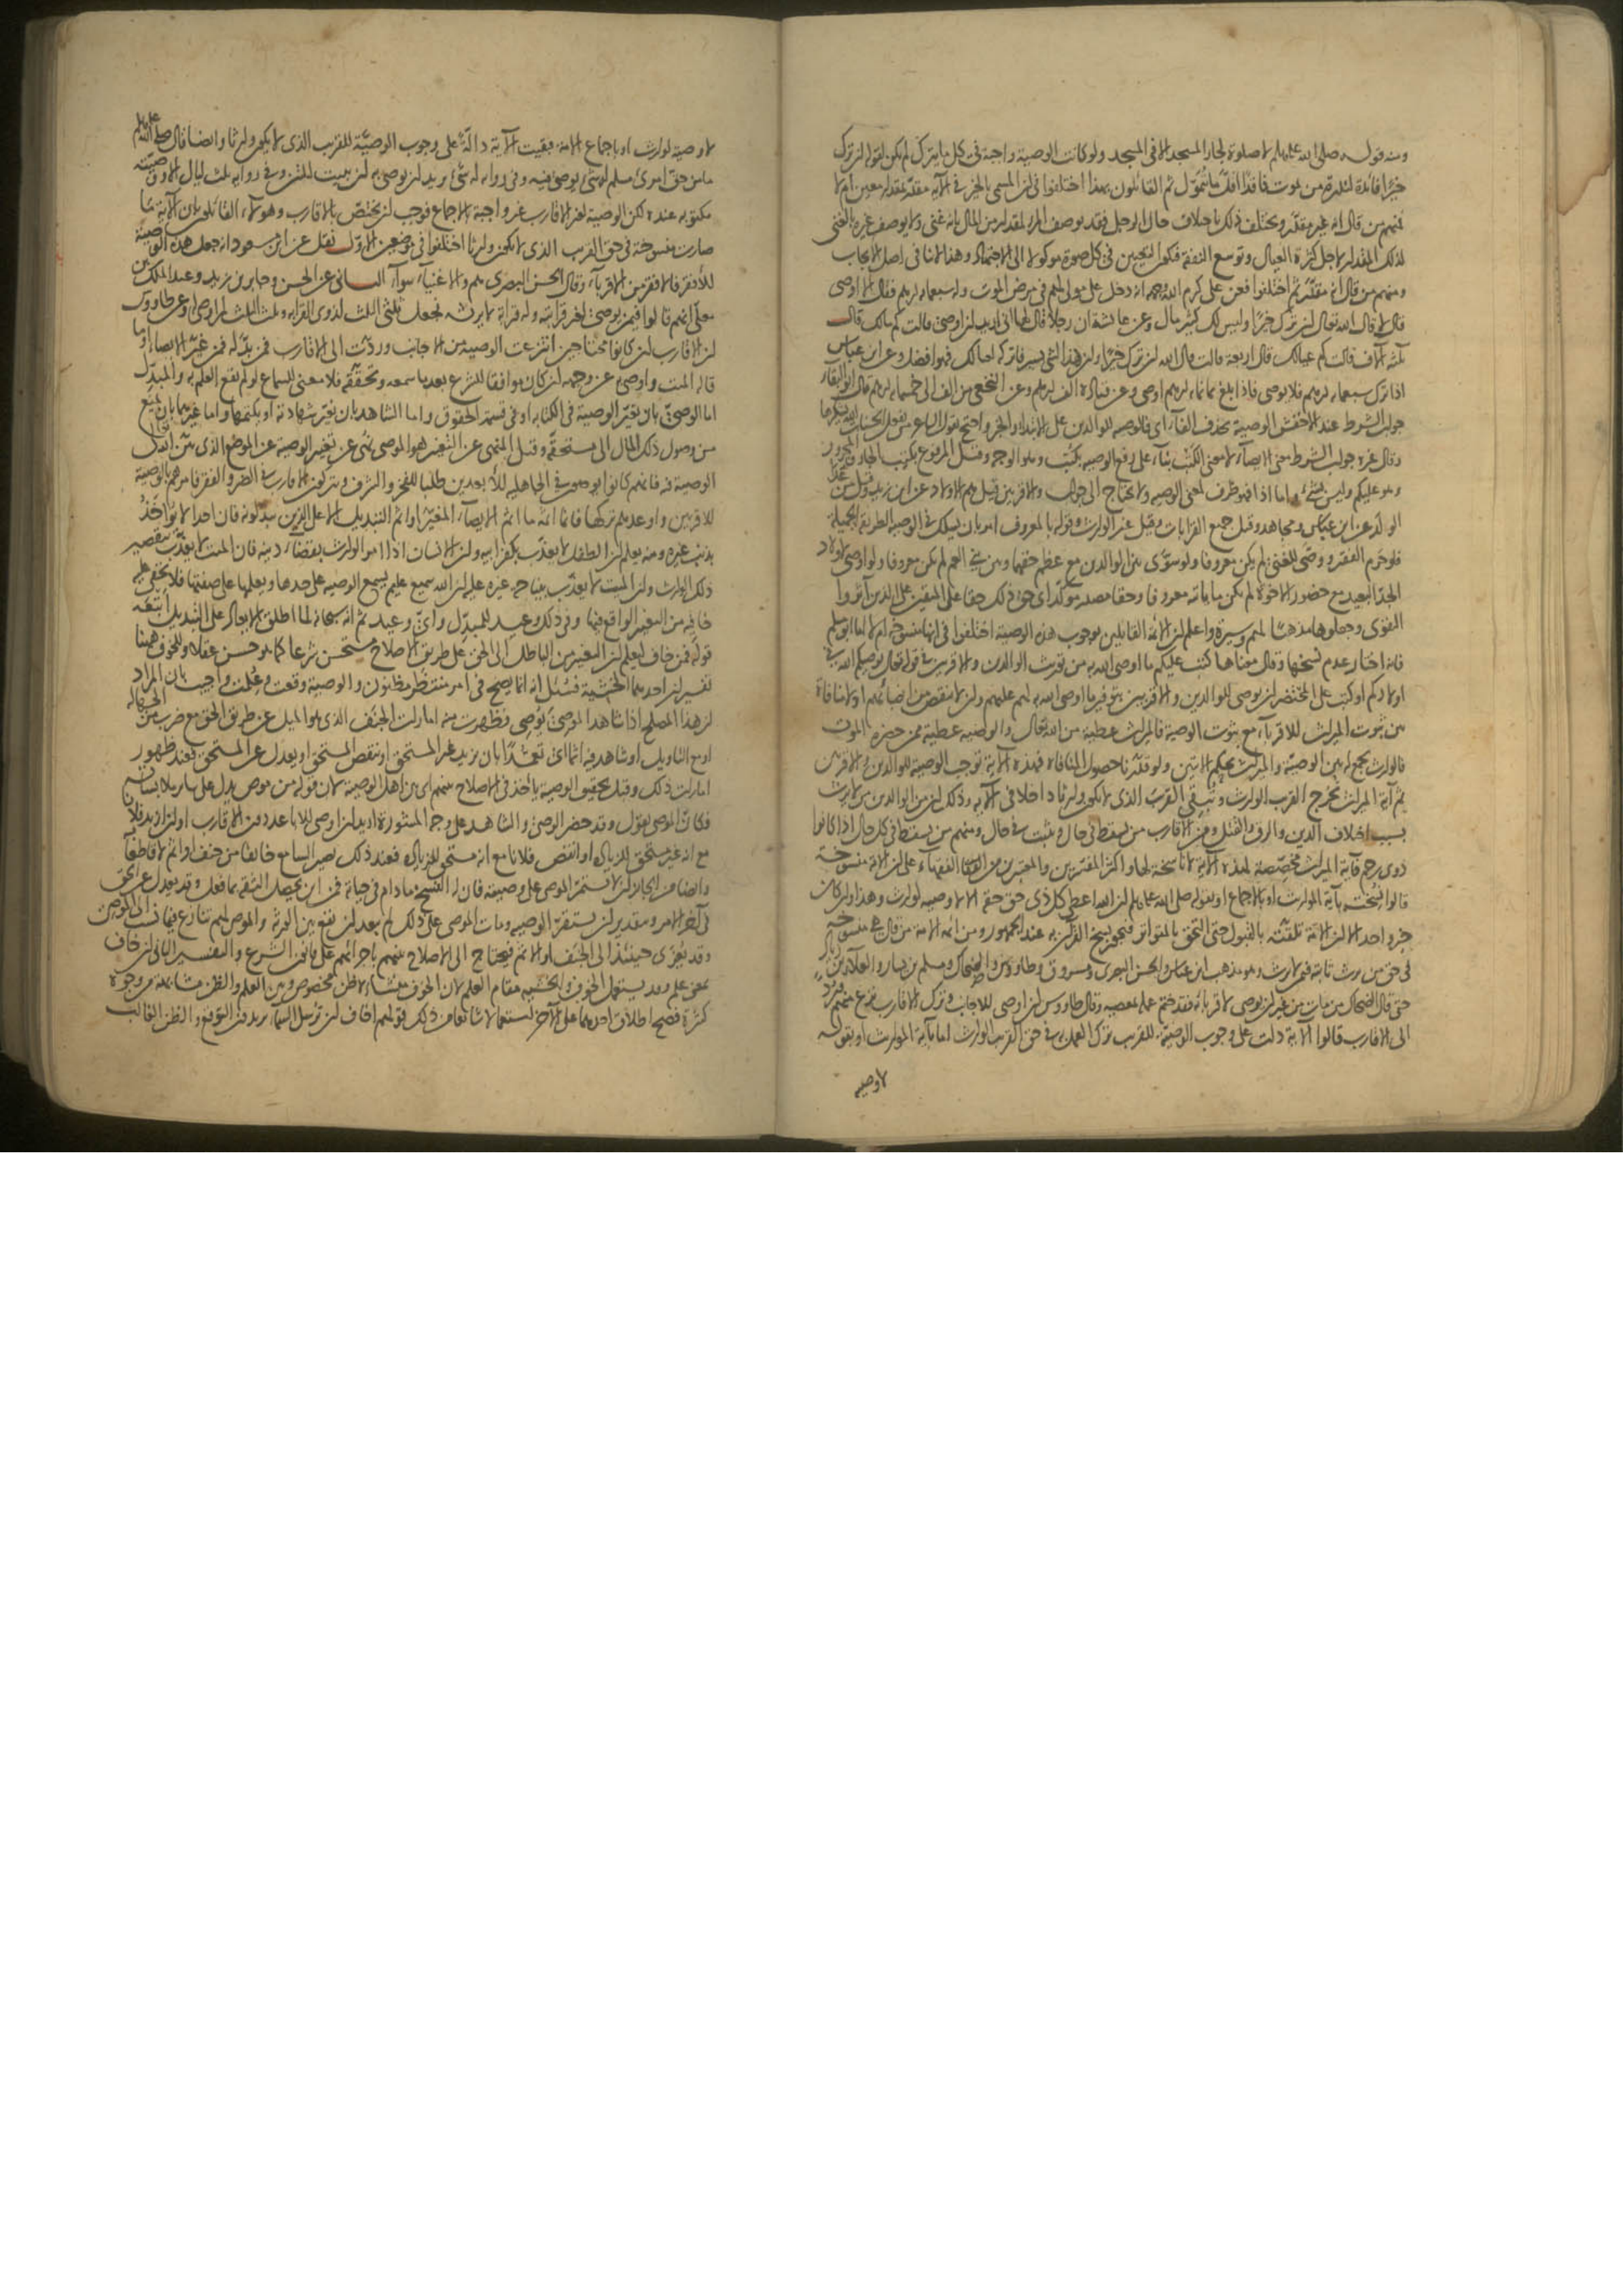 ومنه قوله صلى الله عليه وسلم لا صلوة لجار المسجد الا في المسجد ولو كانت الوصية واجبة في كل ما يترك لم يكن لقوله ان ترك
خيرا فائدة لندرة من يموت فاقدا اقل ما يتمول ثم القائلون بهذا اختلفوا في ان المسمى بالخير في الآية مقدر بمقدار معين ام لا
فمنهم من قال انه غير مقدر ويختلف ذلك باختلاف حال الرجل فقد يوصف المرء لمقدار من المال بانه غني ولا يوصف غيره بالغنى
لذلك المقدار لاجل كثرة العيال وتوسع النفقة فيكون التعيين في كل صورة موكولا الى الاجتهاد وهذا لا ينافي اصل الايجاب
ومنهم من قال انه مقدر ثم اختلفوا فعن علي كرم الله وجهه انه دخل على مولى لهم في مرض الموت وله سبعمايه درهم فقال الا اوصي
قال لا قال الله تعالى ان ترك خيرا وليس لك كثير مال وعن عائشة ان رجلا قال لها اني اريد ان اوصي قالت كم مالك قال
ثلثة آلاف قالت كم عيالك قال اربعة قالت قال الله ان ترك خيرا وان هذا الشيء يسير فاتركه لعيالك فهو افضل وعن ابن عباس
اذا ترك سبعمايه درهم فلا يوصي فاذا بلغ ثمانمايه درهم اوصى وعن قتادة الف درهم وعن النخعي من الف الى خمسمايه درهم قال ابو البقاء
جواب الشرط عند الاخفش الوصية بحذف الفاء اي فالوصية للوالدين على الابتداء والخبر واحتج بقول الشاعر من يفعل الحسنات الله يشكرها
وقال غيره جواب الشرط معنى الايصاء لا معنى الكتب بناء على رفع الوصية بكتب وهو الوجه وقيل المرفوع بكتب الجار والمجرور
وهو عليكم وليس بشيء واما اذا فهو ظرف لمعنى الوصية ولا يحتاج الى جواب والاقربين قيل هم الاولاد عن ابن زيد وقيل من عدا
الولد عن ابن عباس ومجاهد وقيل جميع القرابات وقيل غير الوارث وقوله بالمعروف امر بان يسلك في الوصية الطريقة الجميلة
فلو حرم الفقير ووصى للغني لم يكن معروفا ولو سوى بين الوالدين مع عظم حقهما وبين بني العم لم يكن معروفا ولو اوصى لاولاد
الجد البعيد مع حضور الاخوة لم يكن ما ياتيه معروفا وحقا مصدر مؤكد اي حق ذلك حقا على المتقين على الذين آثروا
التقوى وجعلوها مذهبا لهم وسيرة واعلم ان الائمة القايلين بوجوب هذه الوصية اختلفوا في انها منسوخة ام لا اما ابو مسلم
فانه اختار عدم نسخها وقال معناها كتب عليكم ما اوصى الله به من توريث الوالدين والاقربين في قوله تعالى يوصيكم الله في
اولادكم او كتب على المحتضر ان يوصي للوالدين والاقربين بتوفير ما اوصى الله به لهم عليهم وان لا ينقص من انصبائهم اولا منافاة
بين ثبوت الميراث للاقرباء مع ثبوت الوصية فالميراث عطية من الله تعالى والوصية عطية ممن حضره الموت
فالوارث جمع له بين الوصية والميراث بحكم الآيتين ولو قدرنا حصول المنافاة فهذه الآية توجب الوصية للوالدين والاقربين
ثم آية الميراث تخرج القريب الوارث وتبقي القريب الذي لا يكون وارثا داخلا في الآية وذلك ان من الوالدين من لا يرث
بسبب اختلاف الدين والرق والقتل ومن الاقارب من يسقط في حال ويثبت في حال ومنهم من يسقط في كل حال اذا كانوا
ذوي رحم فآية الميراث مخصصة لهذه الآية لا ناسخة لها واكثر المفسرين والمعتبرين من الفقهاء على ان الآية منسوخة
قالوا نسخت بآية المواريث او بالاجماع او بقوله صلى الله عليه وسلم ان الله اعطى كل ذي حق حقه الا لا وصية لوارث وهذا وان كان
خبر واحد الا ان الائمة تلقته بالقبول حتى التحق بالمتواتر فيجوز نسخ القرآن به عند الجمهور ومن ائمة الامة من قال هي منسوخة
في حق من يرث ثابتة فيمن لا يرث وهو مذهب ابن عباس والحسن البصري ومسروق وطاووس والضحاك ومسلم بن يسار والعلاء بن زياد
حتى قال الضحاك من مات من غير ان يوصي لاقربائه فقد ختم عمله بمعصية وقال طاووس ان اوصى للاجانب وترك الاقارب نزع منهم ورد
الى الاقارب قالوا الآية دلت على وجوب الوصية للقريب ترك العمل به في حق القريب الوارث اما بآية المواريث او بقوله
لا وصية
لا وصية لوارث او باجماع الامة فبقيت الآية دالة على وجوب الوصية للقريب الذي لا يكون وارثا وايضا قال صلى الله عليه وسلم
ما من حق امرئ مسلم له شيء يوصي فيه وفي رواية له شيء يريد ان يوصي به ان يبيت ليلتين وفي رواية ثلث ليال الا ووصيته
مكتوبة عنده لكن الوصية لغير الاقارب غير واجبة بالاجماع فوجب ان يختص بالاقارب وهؤلاء القائلون بان الآية ما
صارت منسوخة في حق القريب الذي لا يكون وارثا اختلفوا في موضعين الاول نقل عن ابن مسعود انه جعل هذه الوصية
للافقر فالافقر من الاقرباء وقال الحسن البصري هم والاغنياء سواء الثاني عن الحسن وجابر بن زيد وعبد الملك بن
يعلى انهم قالوا فيمن يوصي لغير قرابته وله قرابة لا يرثه نجعل ثلثي الثلث لذوي القرابة وثلث الثلث لمن اوصى له وعن طاووس
ان الاقارب ان كانوا محتاجين انتزعت الوصية من الاجانب وردت الى الاقارب فمن بدله فمن غير الايصاء او ما
قاله الميت واوصى به عن وجهه ان كان موافقا للشرع بعد ما سمعه وتحققه فلا معنى للسماع لو لم يقع العلم به والمبدل
اما الوصي بان يغير الوصية في الكتابة او في قسمة الحقوق واما الشاهد بان يغير شهادته او يكتمها واما غيرهما بان يمنع
من وصول ذلك المال الى مستحقه وقيل المنهي عن التغيير هو الموصي نهي عن تغيير الوصية عن الموضع الذي بين الله تعالى
الوصية فيه فانهم كانوا يوصون في الجاهلية للابعدين طلبا للفخر والشرف ويتركون الاقارب في الضر والفقر فامرهم بالوصية
للاقربين واوعدهم بتركها فانما اثمه ما اثم الايصاء المغير او اثم التبديل الا على الذين يبدلونه فان احدا لا يؤاخذ
بذنب غيره ومنه يعلم ان الطفل لا يعذب بكفر ابيه وان الانسان اذا امر الوارث بقضاء دينه فان الميت لا يعذب بتقصير
ذلك الوارث وان الميت لا يعذب بنياحة غيره عليه ان الله سميع عليم يسمع الوصية على حدها ويعلمها على صفتها فلا يخفى عليه
خافية من التغيير الواقع فيها وفي ذلك وعيد للمبدل واي وعيد ثم انه سبحانه لما اطلق الايعاد على التبديل اتبعه
قوله فمن خاف ليعلم ان التغيير من الباطل الى الحق على طريق الاصلاح مستحسن شرعا كما هو حسن عقلا وللخوف ههنا
تفسيران احدهما الخشية فسئل انه انما يصح في امر منتظر مظنون والوصية وقعت وعلمت واجيب بان المراد
ان هذا المصلح اذا شاهد الموصي يوصي فظهرت منه امارات الجنف الذي هو الميل عن طريق الحق مع ضرب من الجهالة
او مع التاويل او شاهد فيه اثما اي تعمدا بان يزيد غير المستحق او ينقص المستحق او يعدل عن المستحق فعند ظهور
امارات ذلك وقبل تحقيق الوصية يأخذ في الاصلاح بينهم اي بين اهل الوصية لان قوله من موص يدل على سائر ملابساته
فكان الموصي يقول وقد حضر الوصي والشاهد على وجه المشورة اريد ان اوصي للاباعد دون الاقارب او ان ازيد فلانا
مع انه غير مستحق للزيادة او انقص فلانا مع انه مستحق للزيادة فعند ذلك يصير السامع خائفا من جنف او اثم لا قاطعا
وايضا من الجائز ان لا يستمر الموصي على وصيته فان له الفسخ ما دام في حياته فمن اين يحصل الثقة بما فعل وقد يعدل عن الحق
في آخر الامر وبتقدير ان يستقر الوصية ومات الموصي على ذلك لم يبعد ان يقع بين الورثة والموصى لهم تنازع فيما نسب الى الموصي
وقد يعزى حينئذ الى الجنف او الاثم فيحتاج الى الاصلاح بينهم باجرائهم على قانون الشرع والتفسير الثاني ان خاف
بمعنى علم وقد يستعمل الخوف والخشية مقام العلم لان الخوف منشاؤه ظن مخصوص وبين العلم والظن مشابهة من وجوه
كثيرة فصح اطلاق احدهما على الآخر استعمالا شائعا من ذلك قولهم اخاف ان ترسل السماء يريدون التوقع والظن الغالب